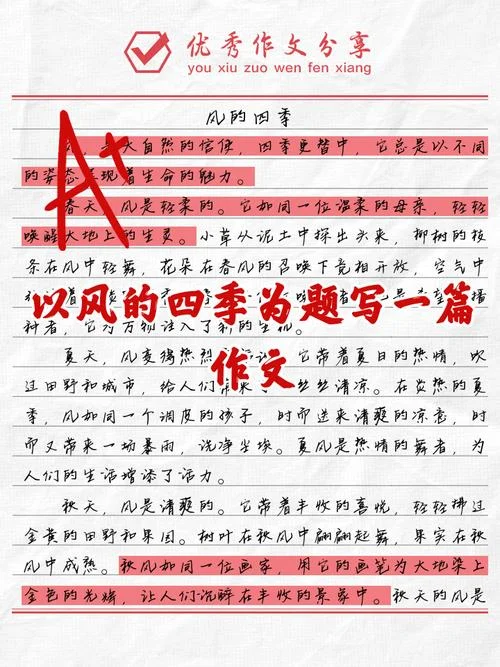 优秀作文分享
you xiu zuo wen fen xiang
A+
风的四季
大自然的信使，四季更替中，它总是以不同
的姿态 现着生命的魅力。
春天，风是轻柔的。它如同一位温柔的母亲，轻轻
唤醒大地上的生灵。小草从泥土中探出头来，柳树的枝
条在风中轻舞，花朵在春风的召唤下竞相开放，空气中
以风的四季为题写一篇
作文
种者，它为万物注入了新的生机。
夏天，风变得热烈 它带着夏日的热情，吹
过田野和城市，给人们带来 丝丝清凉。在炎热的夏
季，风如同一个调皮的孩子，时而送来清爽的凉意，时
而又带来一场暴雨，洗净尘埃。夏风是热情的舞者，为
人们的生活增添了活力。
秋天，风是清爽的。它带着丰收的喜悦，轻轻拂过
金黄的田野和果园。树叶在秋风中翩翩起舞，果实在秋
风中成熟。秋风如同一位画家，用它的画笔为大地染上
金色的光辉，让人们沉醉在丰收的景象中。秋天的风是